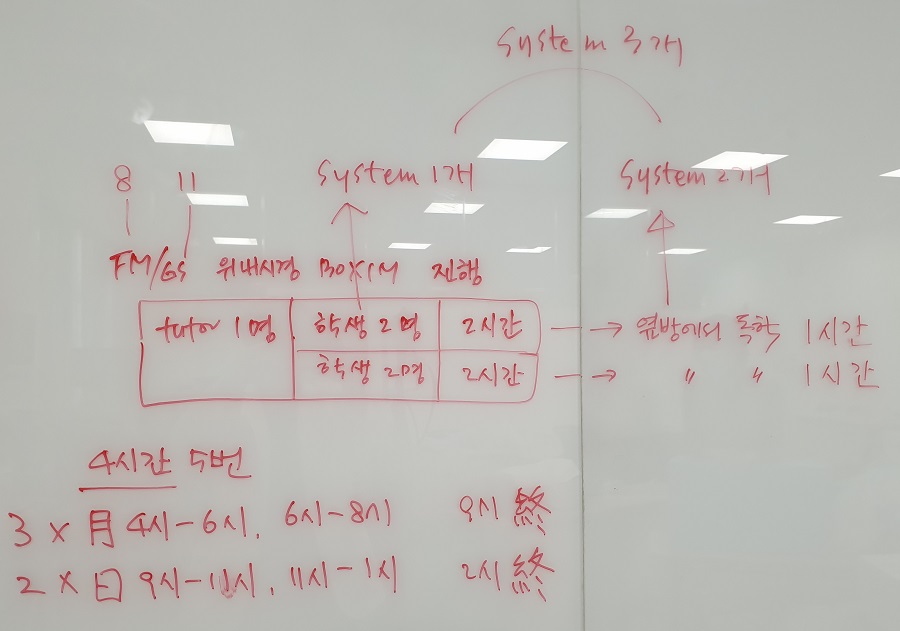 System 3개
8 11 System 1개 System 2개
FM/GS 위내시경 BOXIM 진행
tutor 1명 학생 2명 2시간 → 옆방에서 독학 1시간
학생 2명 2시간 → 〃 〃 1시간
4시간 5번
3 × 月 4시-6시, 6시-8시 9시 終
2 × 日 9시-11시, 11시-1시 2시 終